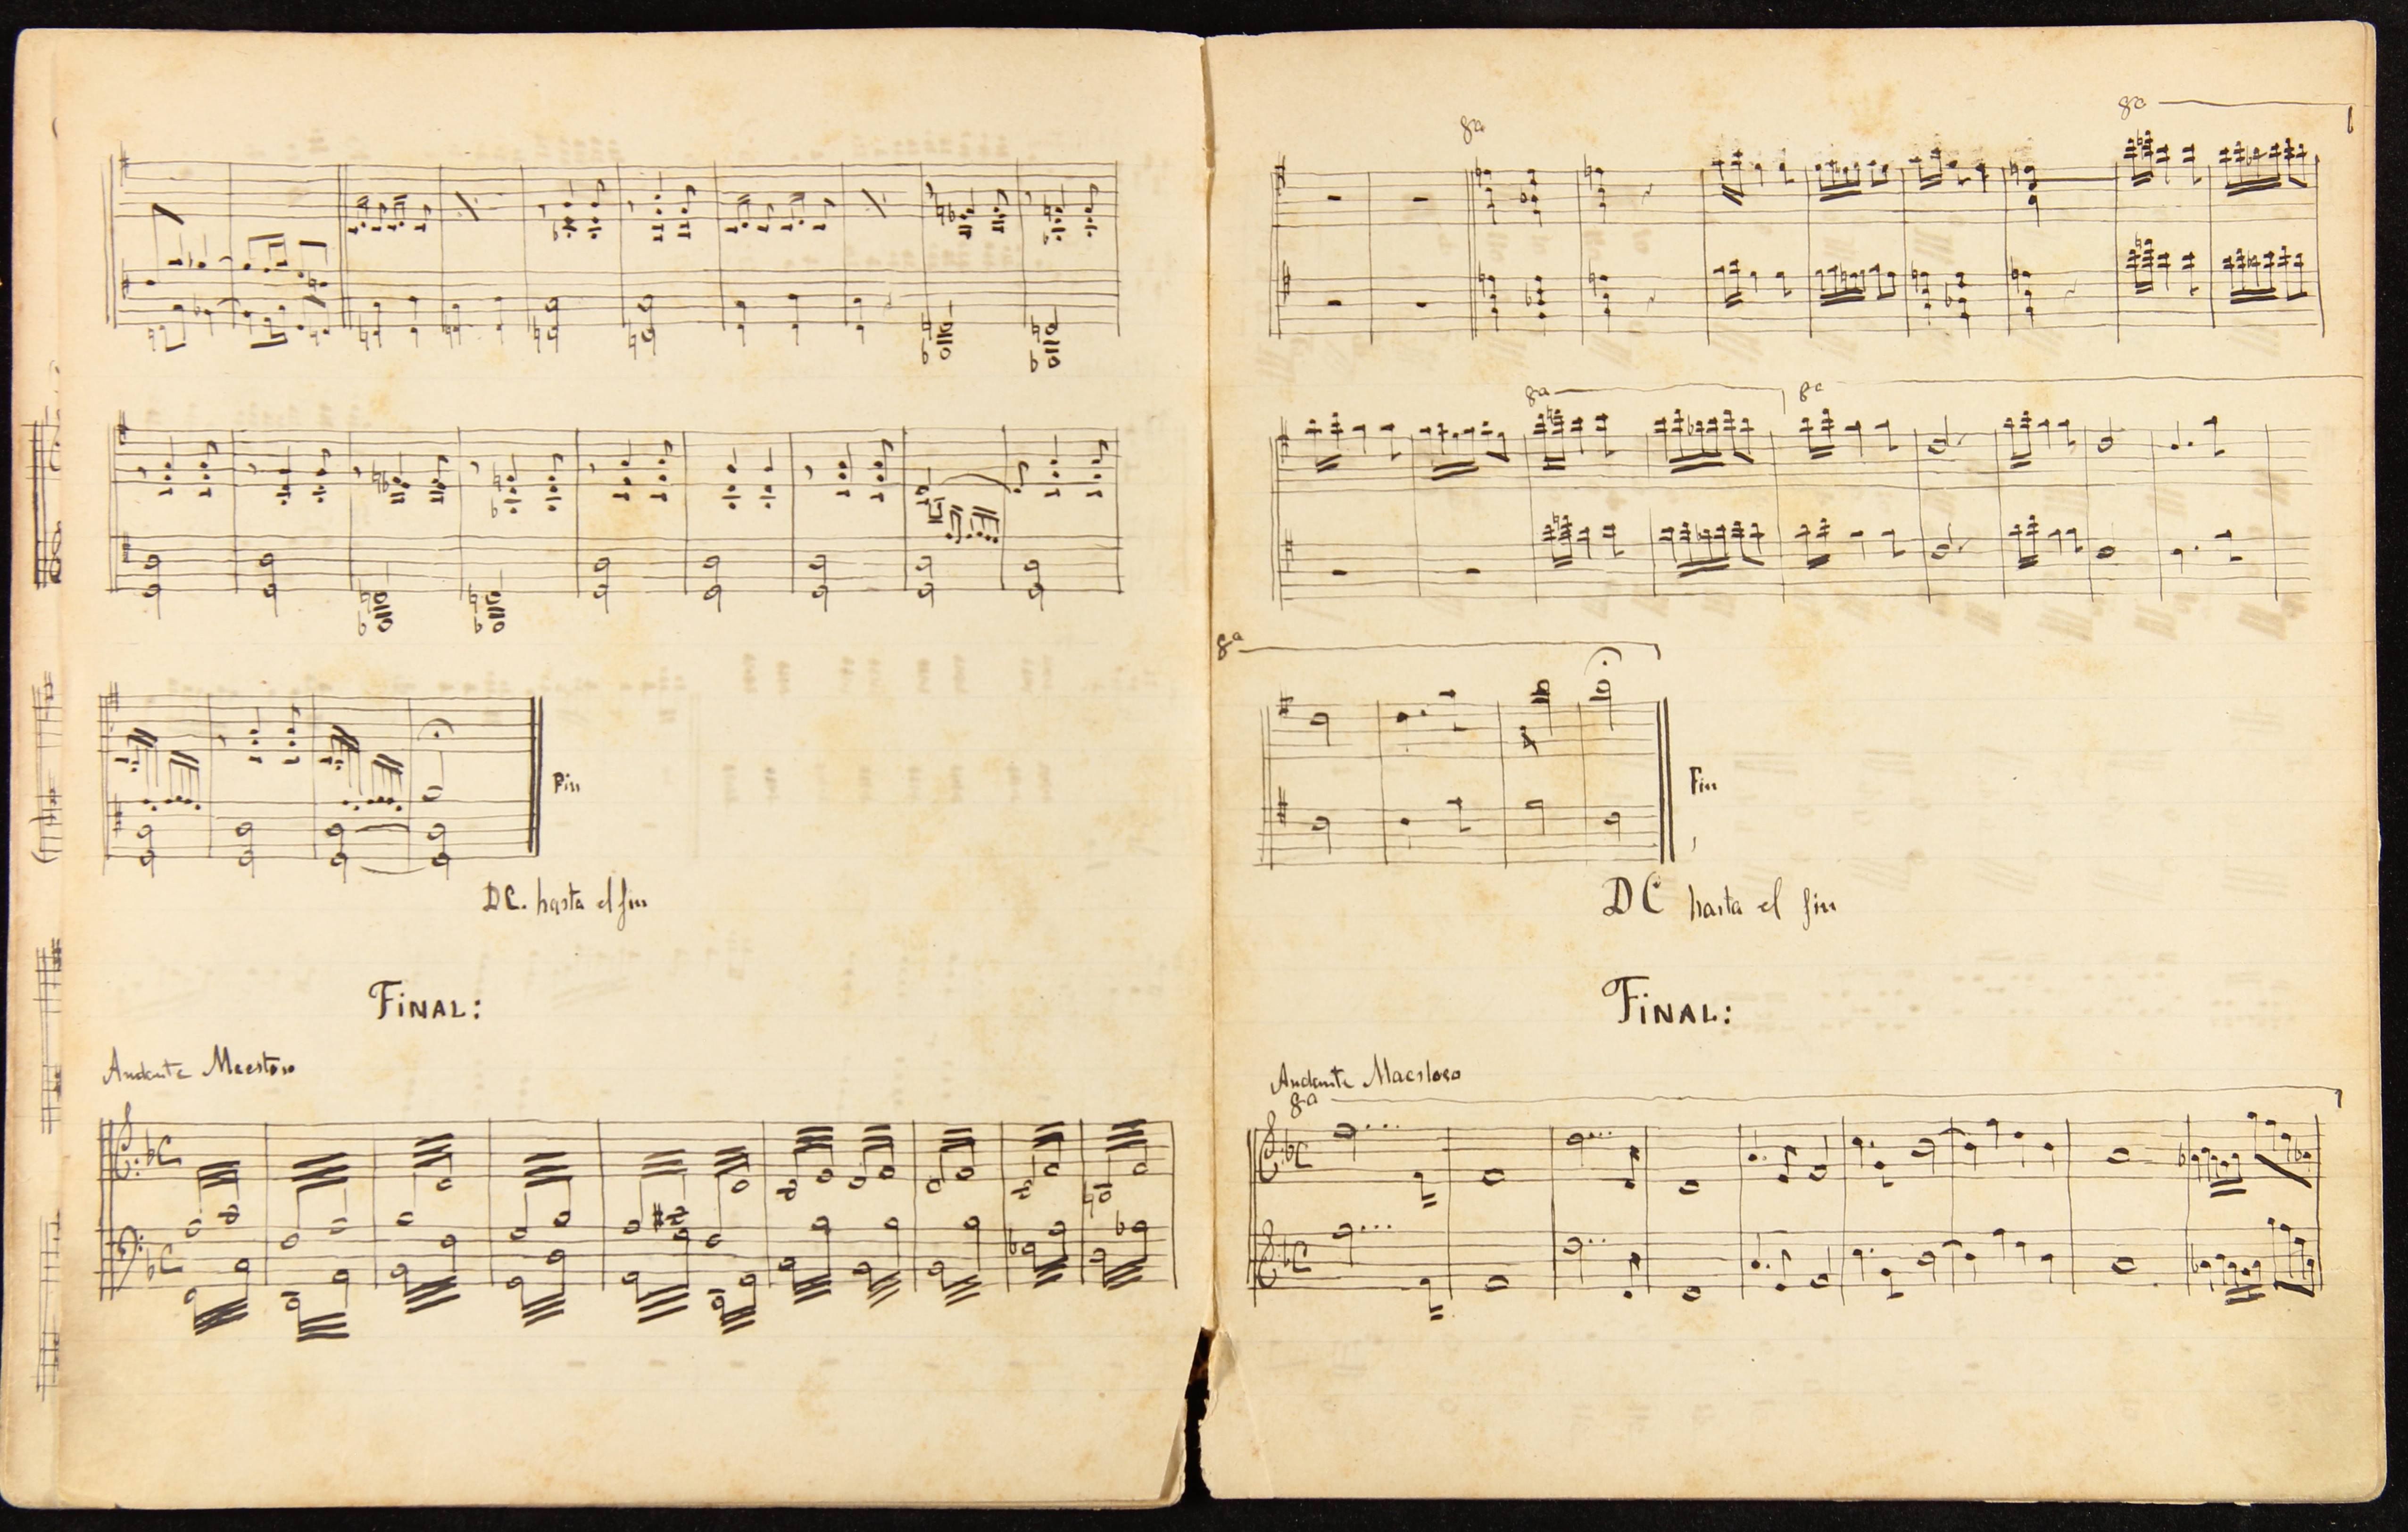 Fin
DC. hasta el fin
FiNAL:
Andante Maestoso
8a
8a
8a
8a
8a
Fin
DC hasta el fin
FiNAL:
Andante Maestoso
8a